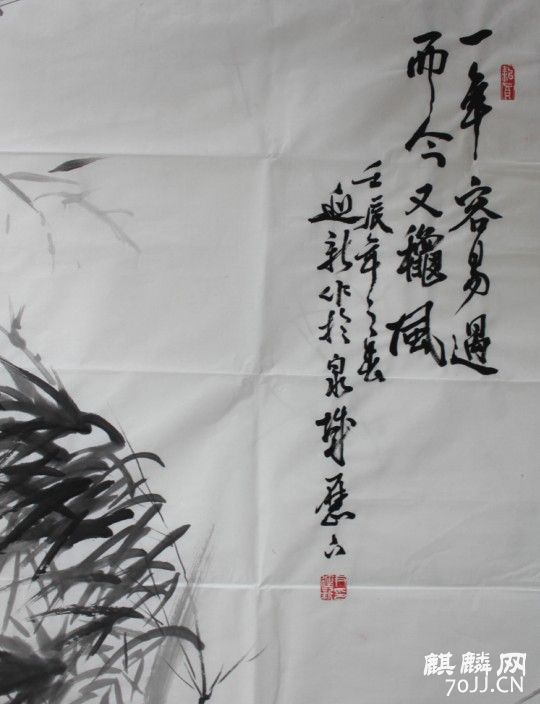 一年容易過
而今又龝風
壬辰年之春
迎新作於泉城歷下
麒麟网
70JJ.CN